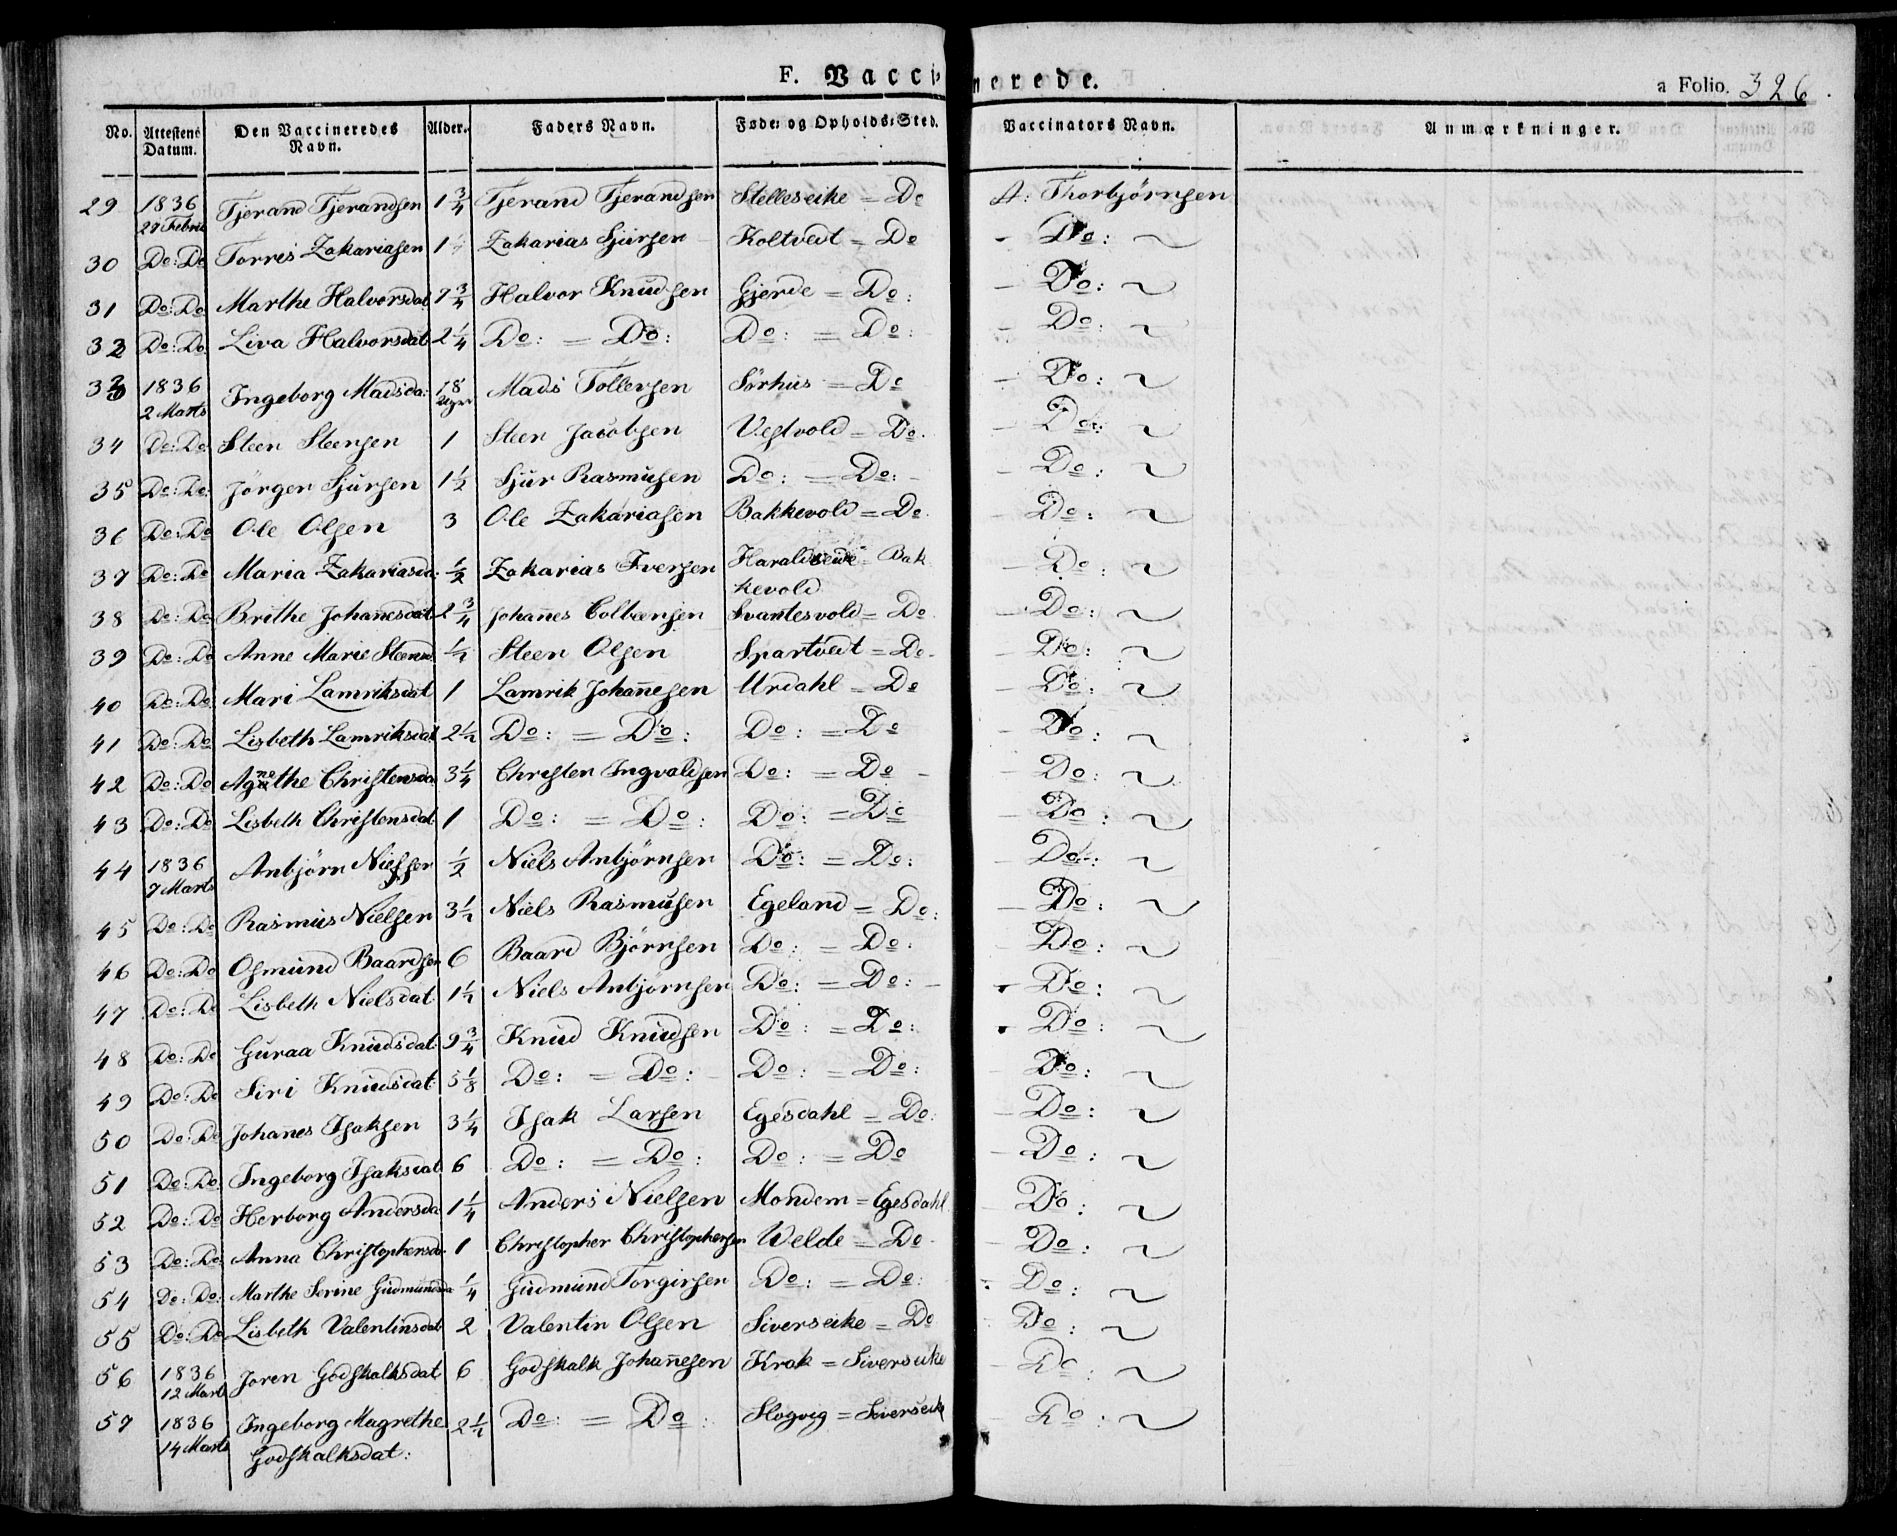 F. Vaccinerede.
a Folio. 326.
No. Attestens Datum. Den Vaccineredes Navn. Alder. Faders Navn. Føde- og Opholds-Sted. Vaccinators Navn. Anmærkninger.
29 1836 27 Febru Tjerand Tjerandsen 1 3/4 Tjerand Tjerandsen Stelleseike = Do A: Thorbjörnsen
30 Do: Do Torris Zakariasen 1 Zakarias Sjursen Koltvedt = Do - Do: ~
31 Do: Do Marthe Halvorsdat 7 3/4 Halvor Knudsen Gjerde = Do: - Do: ~
32 Do: Do Liva Halvorsdat 2 1/4 Do: = Do: Do: = Do: - Do: ~
33 1836 2 Marts Ingeborg Madsda: 18 Uger Mads Tollevsen Sörhus = Do - Do: ~
34 Do: Do Steen Steensen 1 Steen Jacobsen Vestvold = Do. - Do: ~
35 Do: Do: Jörgen Sjursen 1 1/2 Sjur Rasmusen Do: = Do: - Do: ~
36 Do: Do Ole Olsen 3 Ole Zakariasen Bakkevold = Do. - Do: ~
37 Do: Do Maria Zakariasda: 1/2 Zakarias Iversen Haraldseike = Bak - Do: ~
kevold
38 Do: Do Brithe Johannesdat 2 3/4 Johannes Colbensen Svantesvold = Do - Do: ~
39 Do: Do Anne Marie Steensd 1/2 Steen Olsen Spartvedt = Do - Do: ~
40 Do: Do Mari Lamriksdat 1 Lamrik Johannesen Urdahl = Do - Do: ~
41 Do: Do Lisbeth Lamriksdat 2 1/2 Do: = Do: Do: = Do - Do: ~
42 Do: Do Agnethe Christensda 3 1/4 Christen Ingvaldsen Do: = Do - Do: ~
43 Do: Do Lisbeth Christensdat 1 Do: = Do: Do: = Do - Do: ~
44 1836 7 Marts Anbjörn Nielsen 1/2 Niels Anbjörnsen Do: = Do: - Do: ~
45 Do: Do Rasmus Nielsen 3 1/2 Niels Rasmusen Egeland = Do: - Do: ~
46 Do: Do Osmund Baardsen 6 Baard Björnsen Do: = Do: - Do: ~
47 Do: Do Lisbeth Nielsdat 1 1/2 Niels Anbjörnsen Do: = Do: - Do: ~
48 Do: Do Guraa Knudsdat: 9 3/4 Knud Knudsen Do: = Do: - Do: ~
49 Do: Do Siri Knudsdat: 5 1/8 Do: = Do: Do: = Do: - Do: ~
50 Do: Do Johannes Isaksen 3 1/4 Isak Larsen Egesdahl = Do: - Do: ~
51 Do: Do Ingeborg Isaksdat 6 Do: = Do: Do: = Do - Do: ~
52 Do: Do Herborg Andersda 1 1/4 Anders Nielsen Mondem = Egesdahl - Do: ~
53 Do: Do Anna Christophersda 1 Christopher Christophersen Welde = Do - Do: ~
54 Do: Do: Marthe Serine Gudmundsda 1/4 Gudmund Torgirsen Do: = Do: - Do: ~
55 Do: Do Lisbeth Valentinsdat 2 Valentin Olsen Siverseike = Do Do: ~
56 1836 12 Marts Joren Godskalksdat 6 Godskalk Johannesen Krak = Siverseike - Do: ~
57 1836 14 Marts Ingeborg Magrethe 2 1/2 Do: = Do: Slogvig = Siverseik Do: ~
Godskalksdat: